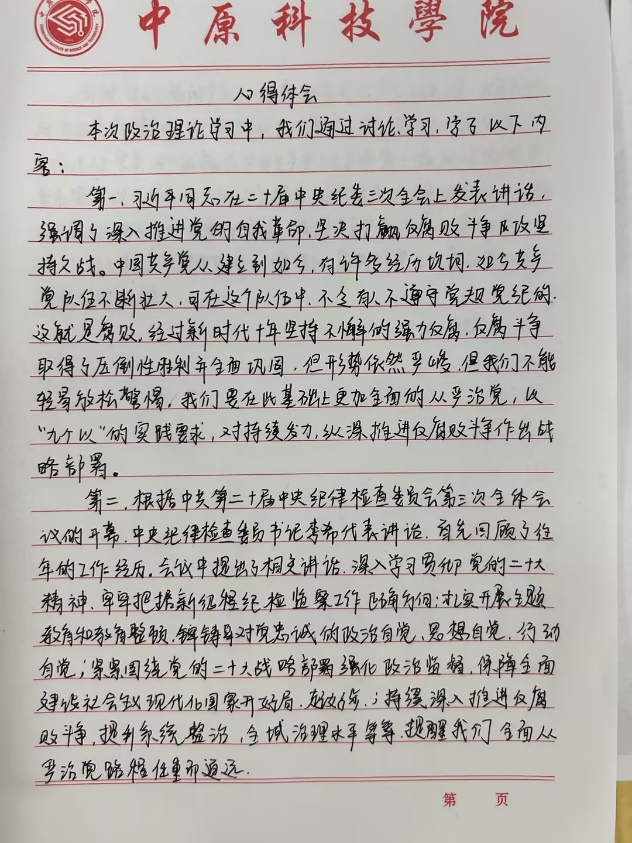 中原科技學院
心得体会
本次政治理论学习中，我们通过讨论、学习，学了以下内
容：
第一，习近平同志在二十届中央纪委三次全会上发表讲话，
强调了深入推进党的自我革命，坚决打赢反腐败斗争攻坚
持久战。中国共产党从建立到如今，有许多经历坎坷，如今共产
党队伍不断壮大，可在这个队伍中，不乏有人不遵守党规党纪的，
这就是腐败。经过新时代十年坚持不懈的强力反腐，反腐斗争
取得了压倒性胜利并全面巩固，但形势依然严峻，但我们不能
轻易放松警惕。我们要在此基础上更加全面的从严治党，以
"九个以"的实践要求，对持续发力，纵深推进反腐败斗争作出战
略部署。
第二，根据中共第二十届中央纪律检查委员会第三次全体会
议的开幕，中央纪律检查委员书记李希代表讲话，首先回顾了往
年的工作经历。会议中提出了相交讲话，深入学习贯彻党的二十大
精神，牢牢把握新征程纪检监察工作正确方向；扎实开展主题
教育和教育整顿，铸对党忠诚的政治自觉、思想自觉、行动
自觉；紧紧围绕党的二十大战略部署强化政治监督，保障全面
建设社会主义现代化国家开好局、起好步；持续深入推进反腐
败斗争，提升系统整治，全域治理水平等等，提醒我们全面从
严治党路程任重而道远．
第 页